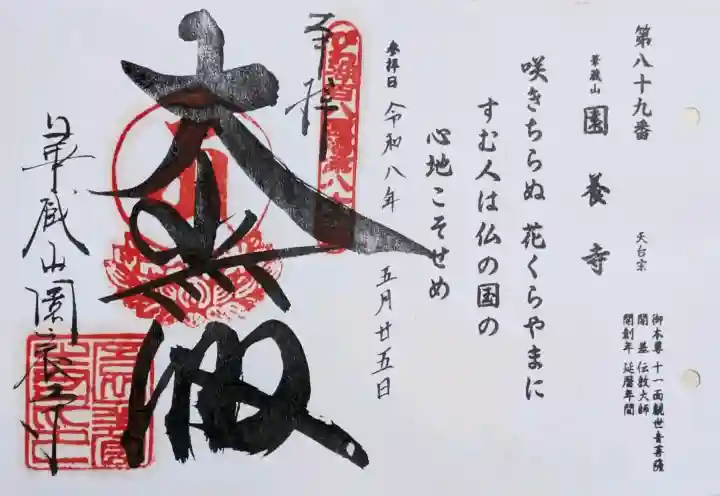 第八十九番
華蔵山 園養寺 天台宗
御本尊 十一面観世音菩薩
開基 伝教大師
開創年 延暦年間
咲きちらぬ 花くらやまに
すむ人は仏の国の
心地こそせめ
参拝日 令和八年 五月廿五日
奉拝
大悲殿
華蔵山園養寺